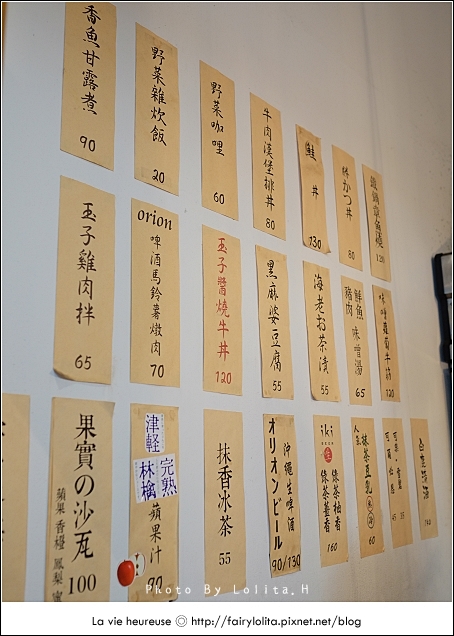 香魚甘露煮
90
野菜雜炊飯
20
野菜咖哩
60
牛肉漢堡排丼
80
鮭丼
130
かつ丼
80
120
玉子雞肉拌
65
orion
啤酒馬鈴薯燉肉
70
玉子醬燒牛丼
120
黑麻婆豆腐
55
海老お茶漬
55
鮮魚味噌湯
豬肉
65
味噌蘿蔔牛筋
120
果實の沙瓦
蘋果 香橙 鳳梨
100
津軽
完熟
林檎
蘋果汁
90
抹香冰茶
55
オリオンビール
沖繩生啤酒
90/130
iki
綠茶柚香
綠茶薑香
160
人氣
抹茶豆乳
60
可樂
45
35
Photo By Lolita.H
La vie heureuse ◎ http://fairylolita.pixnet.net/blog